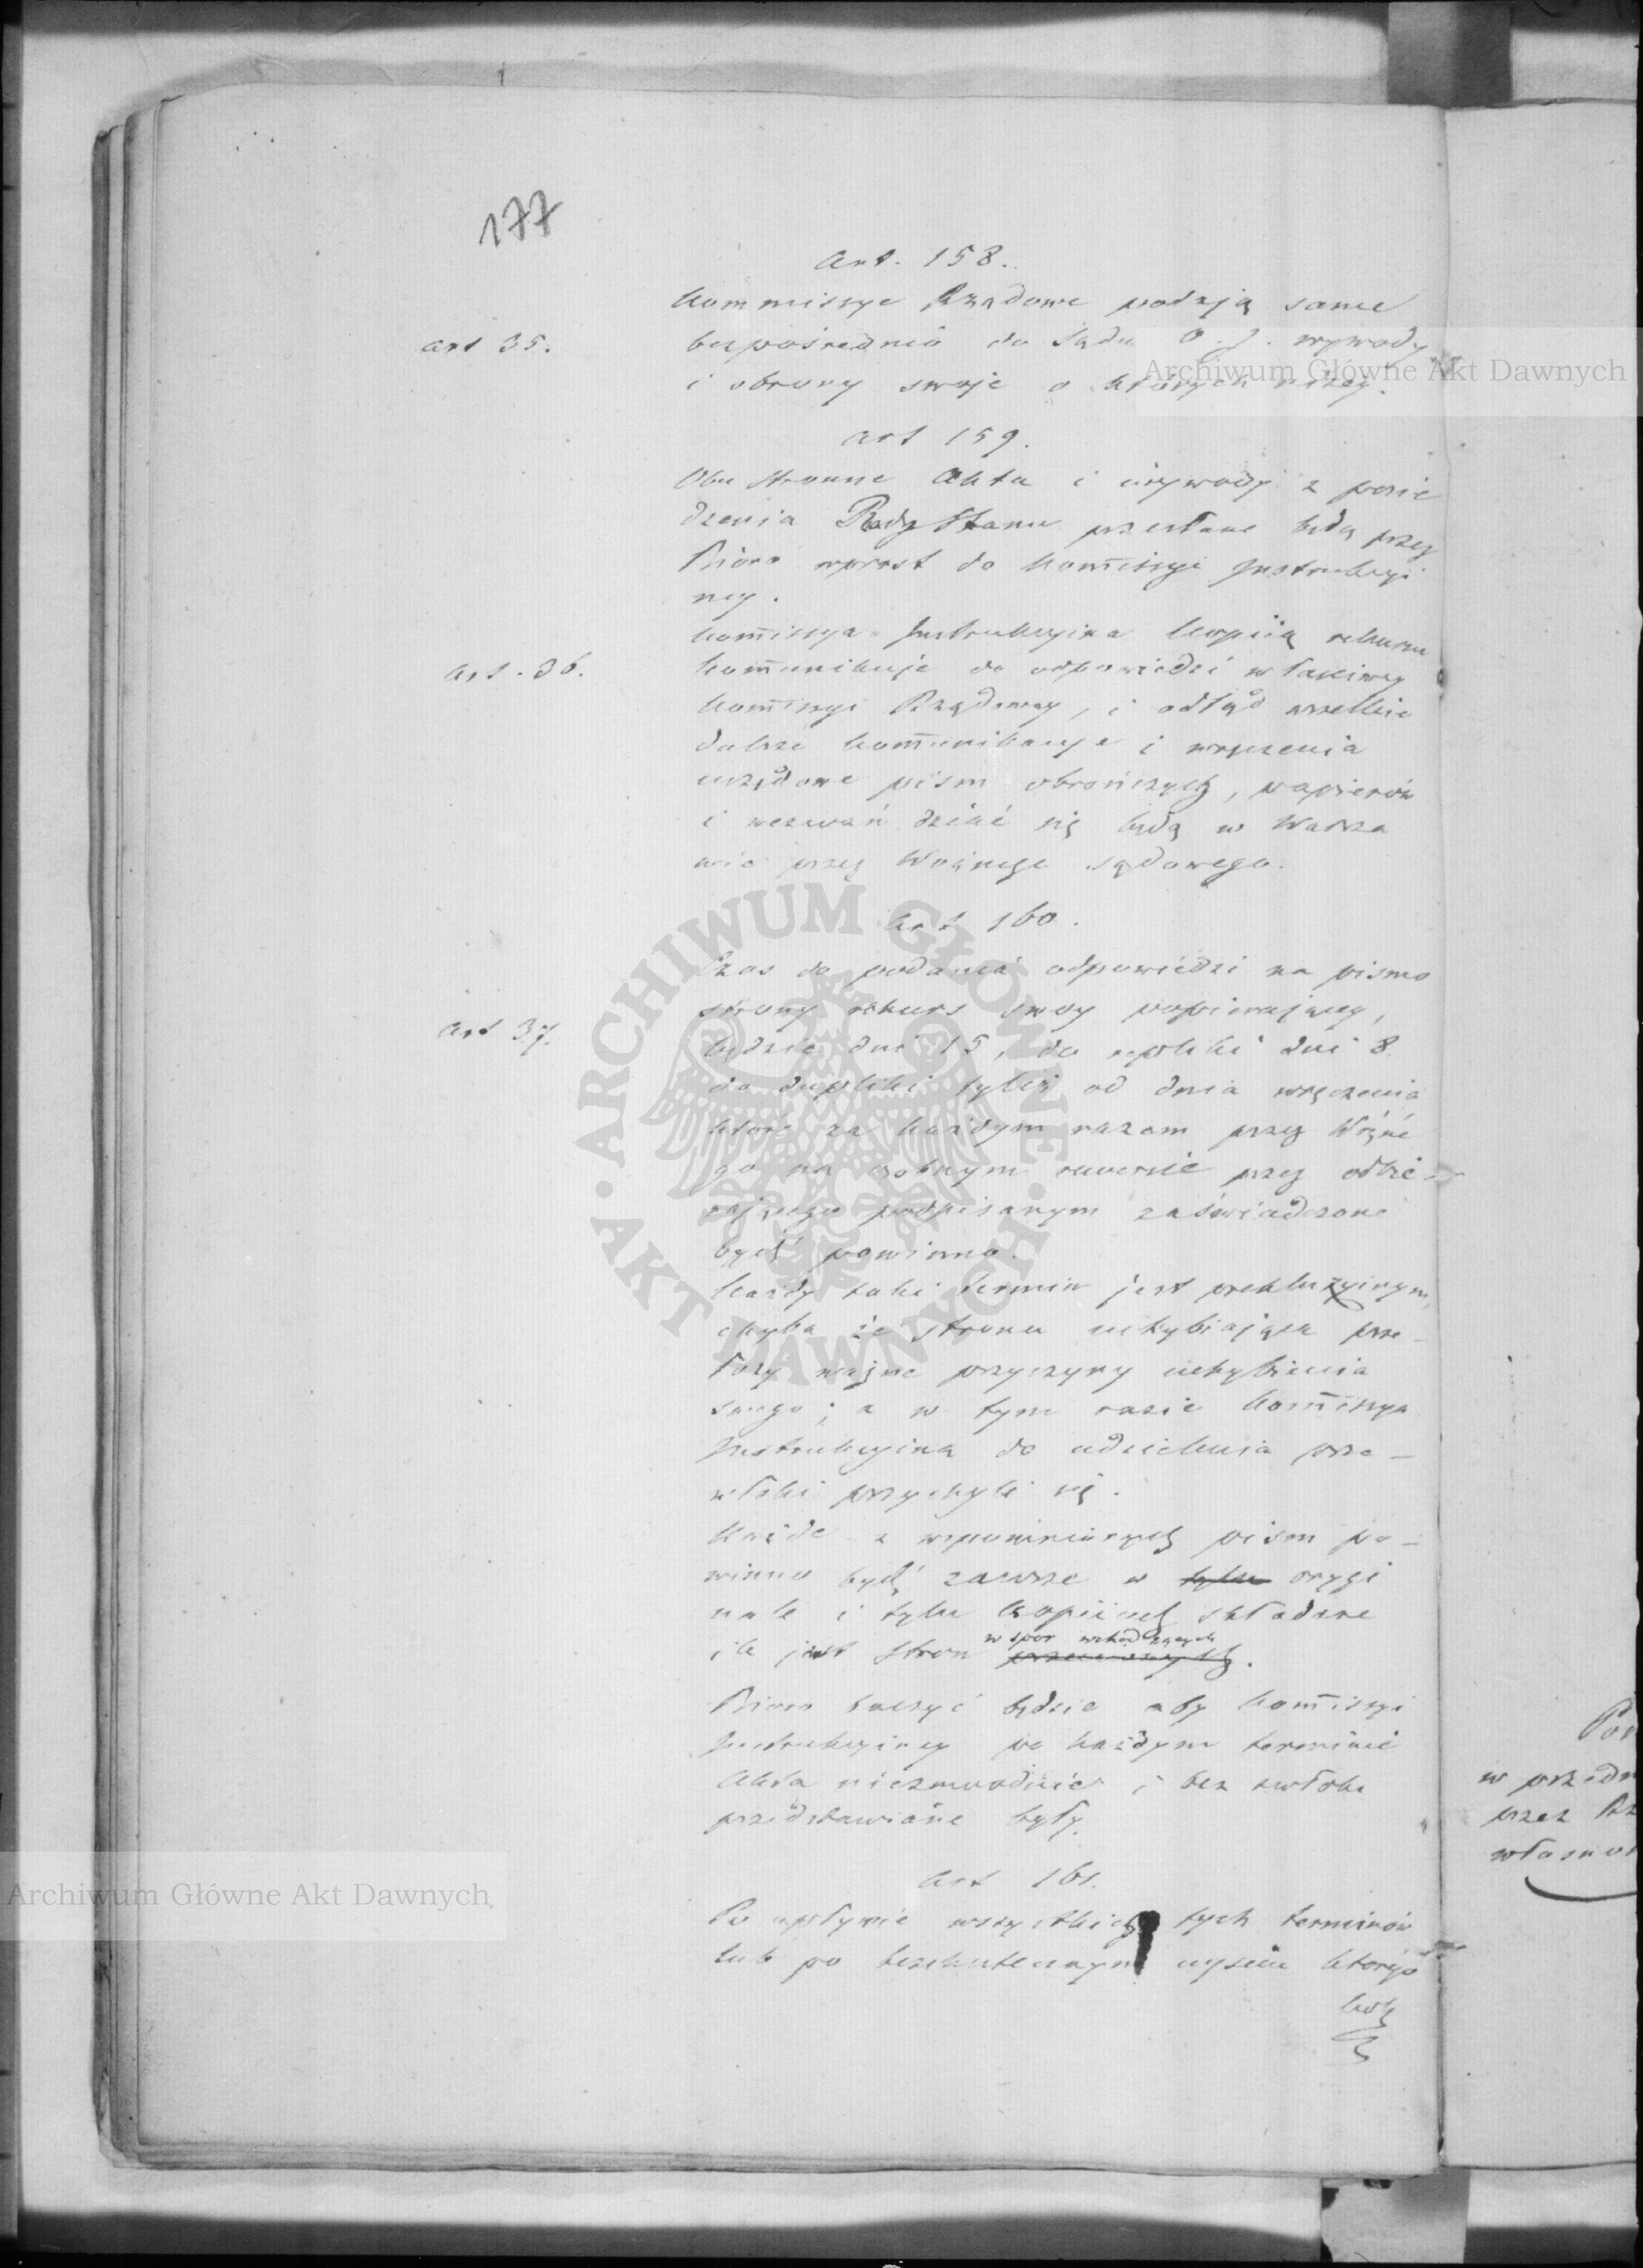 177
Art. 158.
Kommissye Rządowe podają same
art 35.
bezpośrednio do Sądu O. J. wywody
i obrony swoje o których niżej.
art 159.
Obu stronne Akta i wywody z posie
dzenia Rady Stanu przesłane będą przez
Biuro wprost do Kom̄issyi Instrukcyi
ney.
Kom̄issya Instrukcyina kopiią rekursu
Art. 36.
kom̄unikuje do odpowiedzi właściwey
Kom̄issyi Rządowey, i odtąd wszelkie
dalsze kom̄unikacye i wręczenia
urzędowe pism obrończych, papierów
i wezwań dziać się będą w Warsza
wie przez Woźnego sądowego.
Art 160.
Czas do podania odpowiedzi na pismo
strony rekurs swoy popierającey,
art 37.
będzie dni 15, do repliki dni 8.
do dupliki tyleż od dnia wręczenia
które za każdym razem przez Woźne
go na osobnym rewersie przez odbie-
rającego podpisanym zaświadczone
bydź powinno.
Każdy taki termin jest prekluzyinym,
chyba że strona uchybiająca prze-
łoży ważne przyczyny uchybienia
swego; a w tym razie Kom̄issya
Instrukcyina do udzielenia prze-
włoki przychyli się.
Każde z wspomnionych pism po-
winno bydź zawsze w tylu orygi
nale i tylu kopiiach składane
w spor wchodzących
ile jest stron przeciwnych.
Biuro baczyć będzie aby Kom̄issyi
Instrukcyiney po każdym terminie
Akta niezawodnie i bez zwłoki
przedstawione były.
Art 161.
Po upływie wszystkich tych terminów
lub po bezskutecznym uyściu któreyo
kol
w przedm
przez
własno
Archiwum Główne Akt Dawnych
Archiwum Główne Akt Dawnych
ARCHIWUM GŁÓWNE · AKT DAWNYCH ·